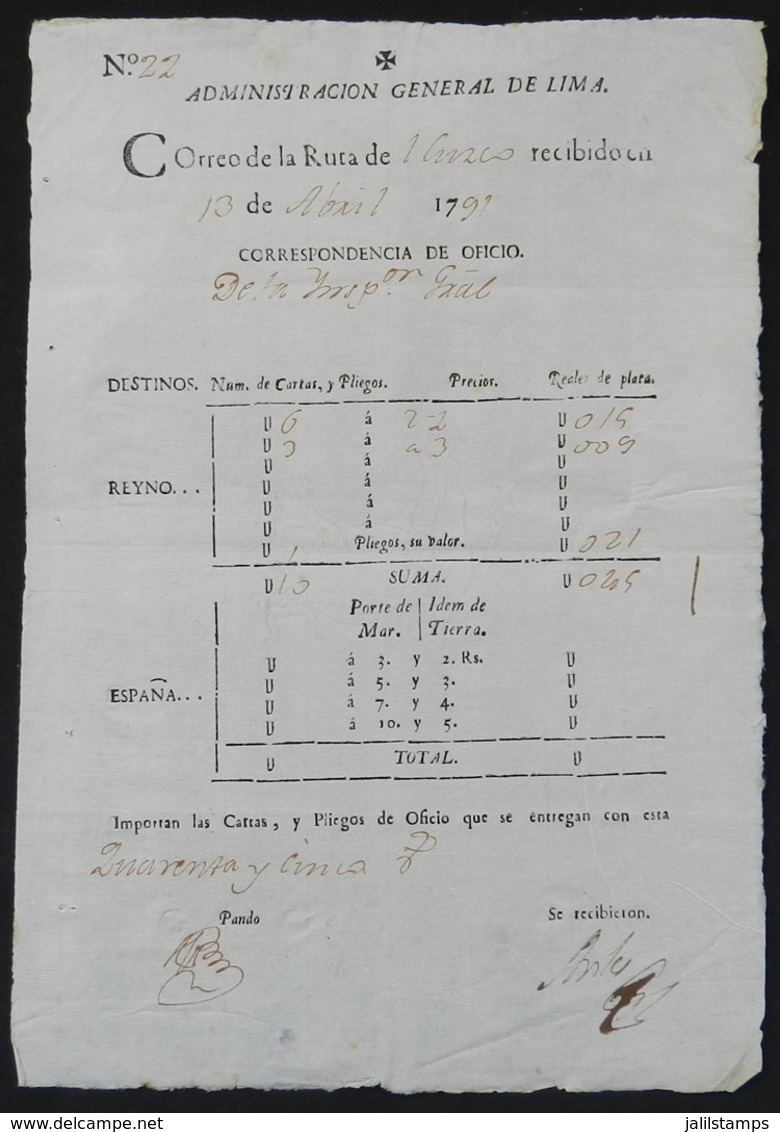 N.º 22
✠
ADMINISTRACION GENERAL DE LIMA.
COrreo de la Ruta de Cuzco recibido en
13 de Abril 1791
CORRESPONDENCIA DE OFICIO.
De la Ynsp.on Gral
DESTINOS. Num. de Cartas, y Pliegos. Precios. Reales de plata.
U 6 á 2-2 U 015
U 3 á a 3 U 009
U á U
REYNO... U á U
U á U
U á U
U 1 Pliegos, su valor. U 021
U 10 SUMA. U 045
Porte de Mar. | Idem de Tierra.
U á 3. y 2. Rs. U
U á 5. y 3. U
ESPAÑA... U á 7. y 4. U
U á 10. y 5. U
U TOTAL. U
Importan las Cartas, y Pliegos de Oficio que se entregan con esta
Quarenta y cinco
Pando Se recibieron.
delcampe.net jalilstamps